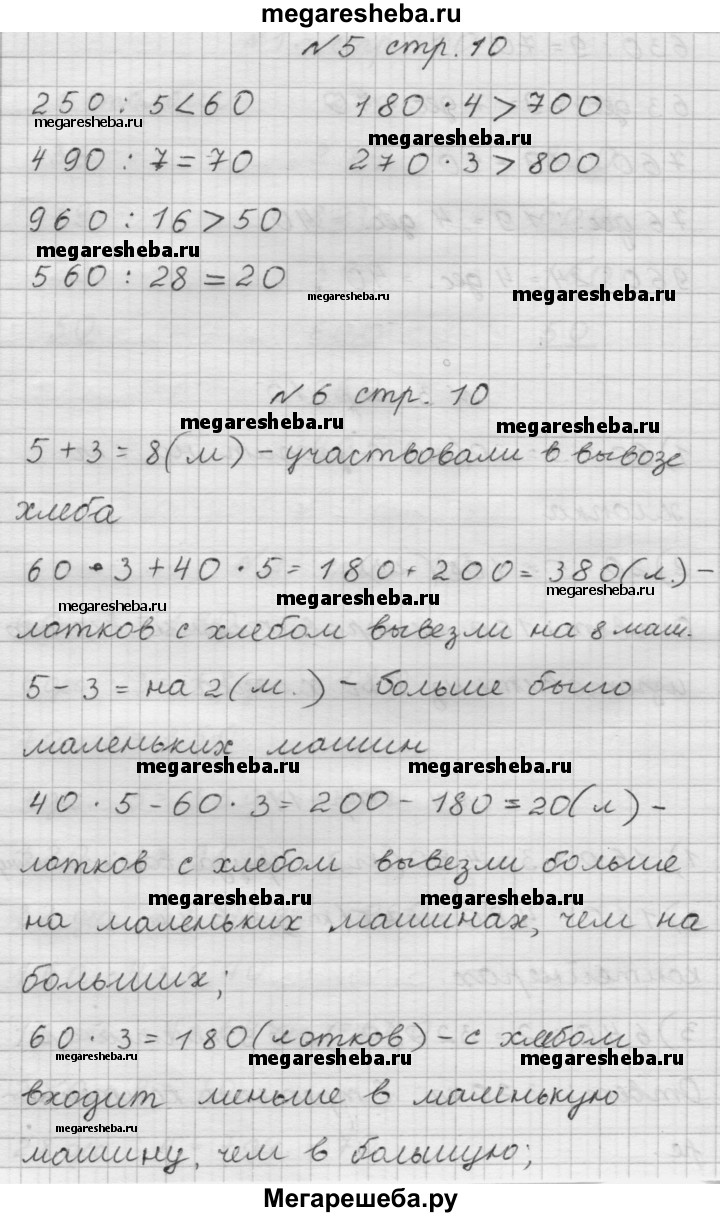 megaresheba.ru
№5 стр. 10
250 : 5 < 60 180 · 4 > 700
megaresheba.ru megaresheba.ru
490 : 7 = 70 270 · 3 > 800
960 : 16 > 50
megaresheba.ru
560 : 28 = 20
megaresheba.ru megaresheba.ru
№6 стр. 10
megaresheba.ru megaresheba.ru
5 + 3 = 8(м) – участвовали в вывозе
хлеба
60 · 3 + 40 · 5 = 180 + 200 = 380(л.) –
megaresheba.ru megaresheba.ru megaresheba.ru
лотков с хлебом вывезли на 8 маш.
5 – 3 = на 2(м.) – больше было
маленьких машин
megaresheba.ru megaresheba.ru
40 · 5 – 60 · 3 = 200 – 180 = 20(л) –
лотков с хлебом вывезли больше
megaresheba.ru megaresheba.ru
на маленьких машинах, чем на
больших;
60 · 3 = 180(лотков) – с хлебом
megaresheba.ru megaresheba.ru megaresheba.ru
входит меньше в маленькую
megaresheba.ru
машину, чем в большую;
Мегарешеба.ру